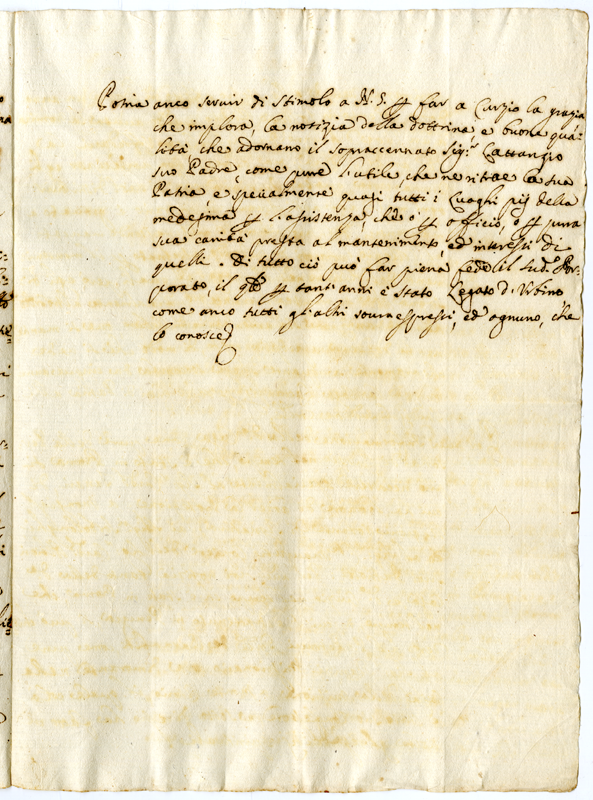 Potria anco servir di stimolo a N. S. ꝑ far a Curzio la grazia
che implora, la notizia della dottrina e buona qua=
lità che adornano il sopraccennato Sig.r Lattanzio
suo Padre, come pure l'utile, che ne ritrae la sua
Patria, e specialmente quasi tutti i Luoghi pij della
medesima ꝑ l'assistenza, che ò ꝑ officio, ò ꝑ pura
sua carità presta al mantenimento, ed interessi di
quelli. Di tutto ciò può far piena fede il sud.o Por=
porato, il qle ꝑ tant'anni è stato Legato d'Urbino
come anco tutti gl'altri sourespressi, ed ognuno, che
lo conosce